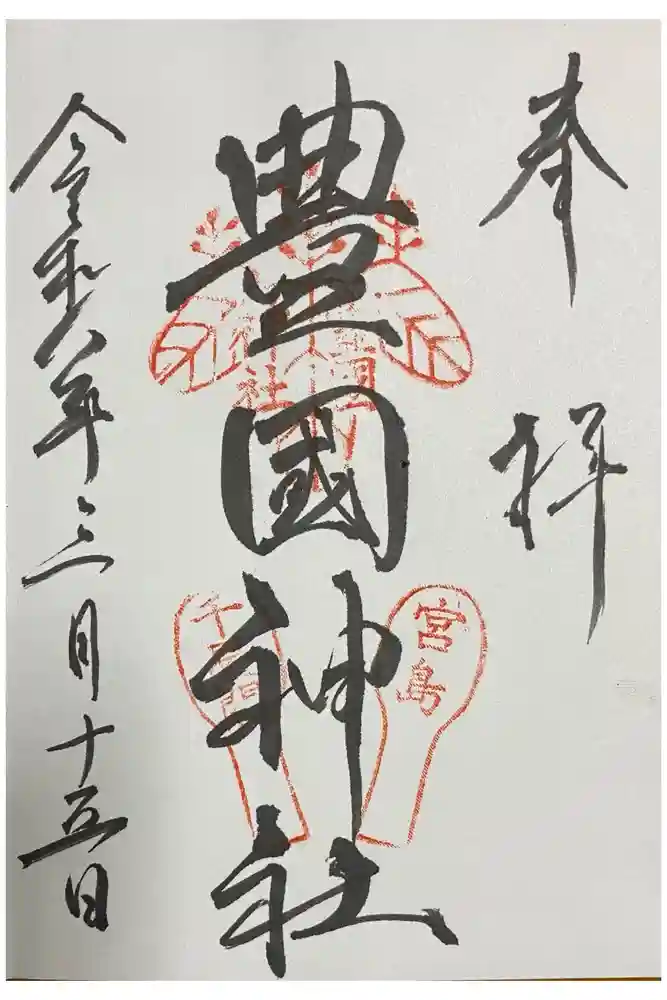 奉拝
豊國神社
令和八年三月十五日
豊国
神社
宮島
千畳閣